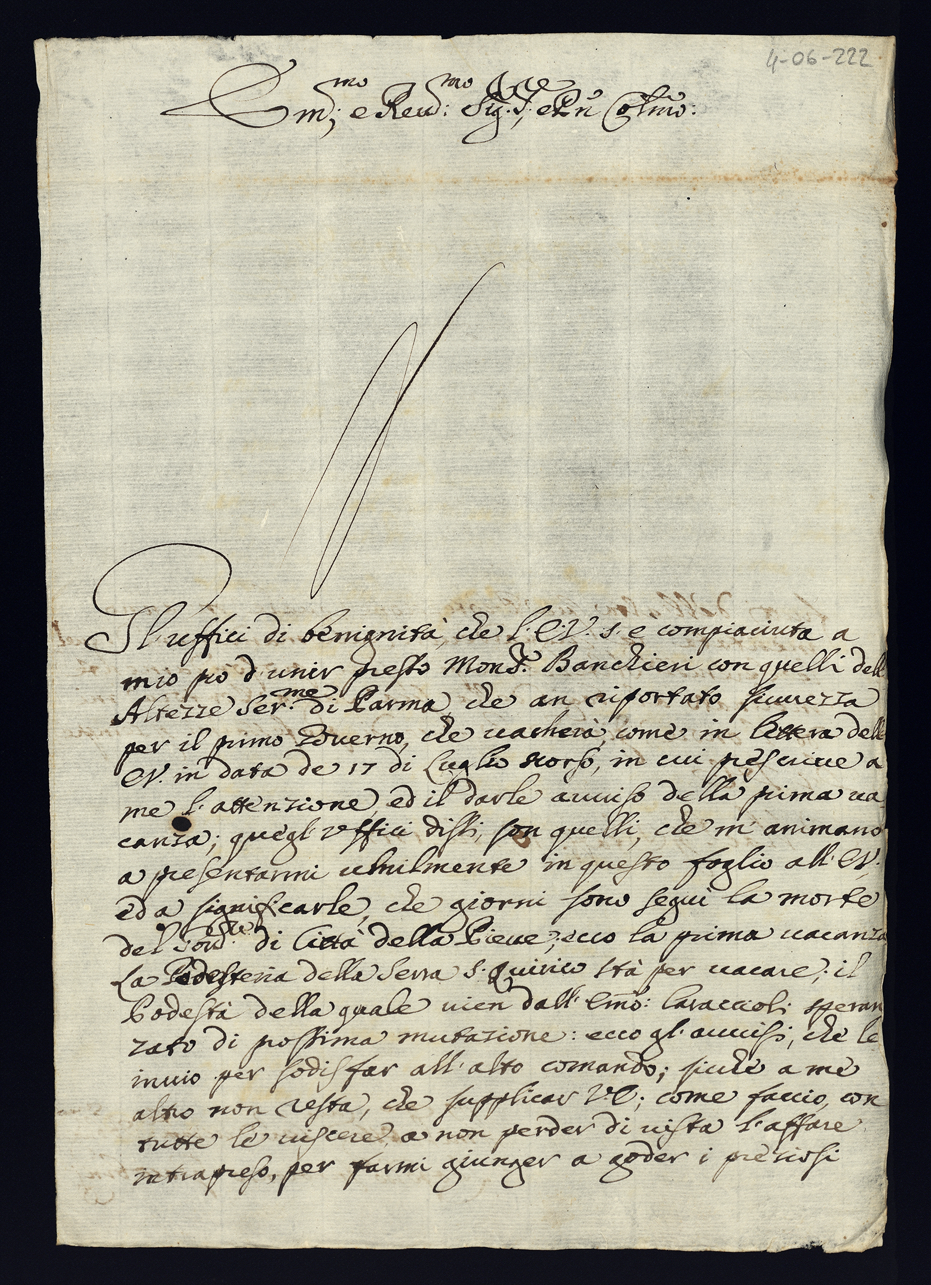 4-06-222
Em:mo e Reu:mo Sig.re, e Pñ Colmo:
Gl'uffici di benignità, che l'E.V. s'e compiaciuta a
mio pro d'unir presso Mons.r Banchieri con quelli dell'
Altezze Ser.me di Parma, che an riportato sicurezza
per il primo Governo, che uacherà, come in lettera dell'
E.V. in data de 17 di Luglio scorso, in cui prescriue a
me l'attenzione ed il darle auuiso della prima ua
canza; quegl'Uffici dissi, son quelli, che m'animano
a presentarmi umilmente in questo foglio all'E.V.
ed a significarle, che giorni sono seguì la morte
del di Città della Pieue; ecco la prima uacanza
La Podesteria della Serra S. Quirico stà per uacare; il
Podestà della quale uien dall'Emo: Caraccioli speran
zato di prossima mutazione: ecco gl'auuisi, che le
inuio per sodisfar all'alto comando; siche a me
altro non resta, che supplicar V.E; come faccio, con
tutte le uiscere, a non perder di uista l'affare
intrapreso, per farmi giunger a goder i preziosi